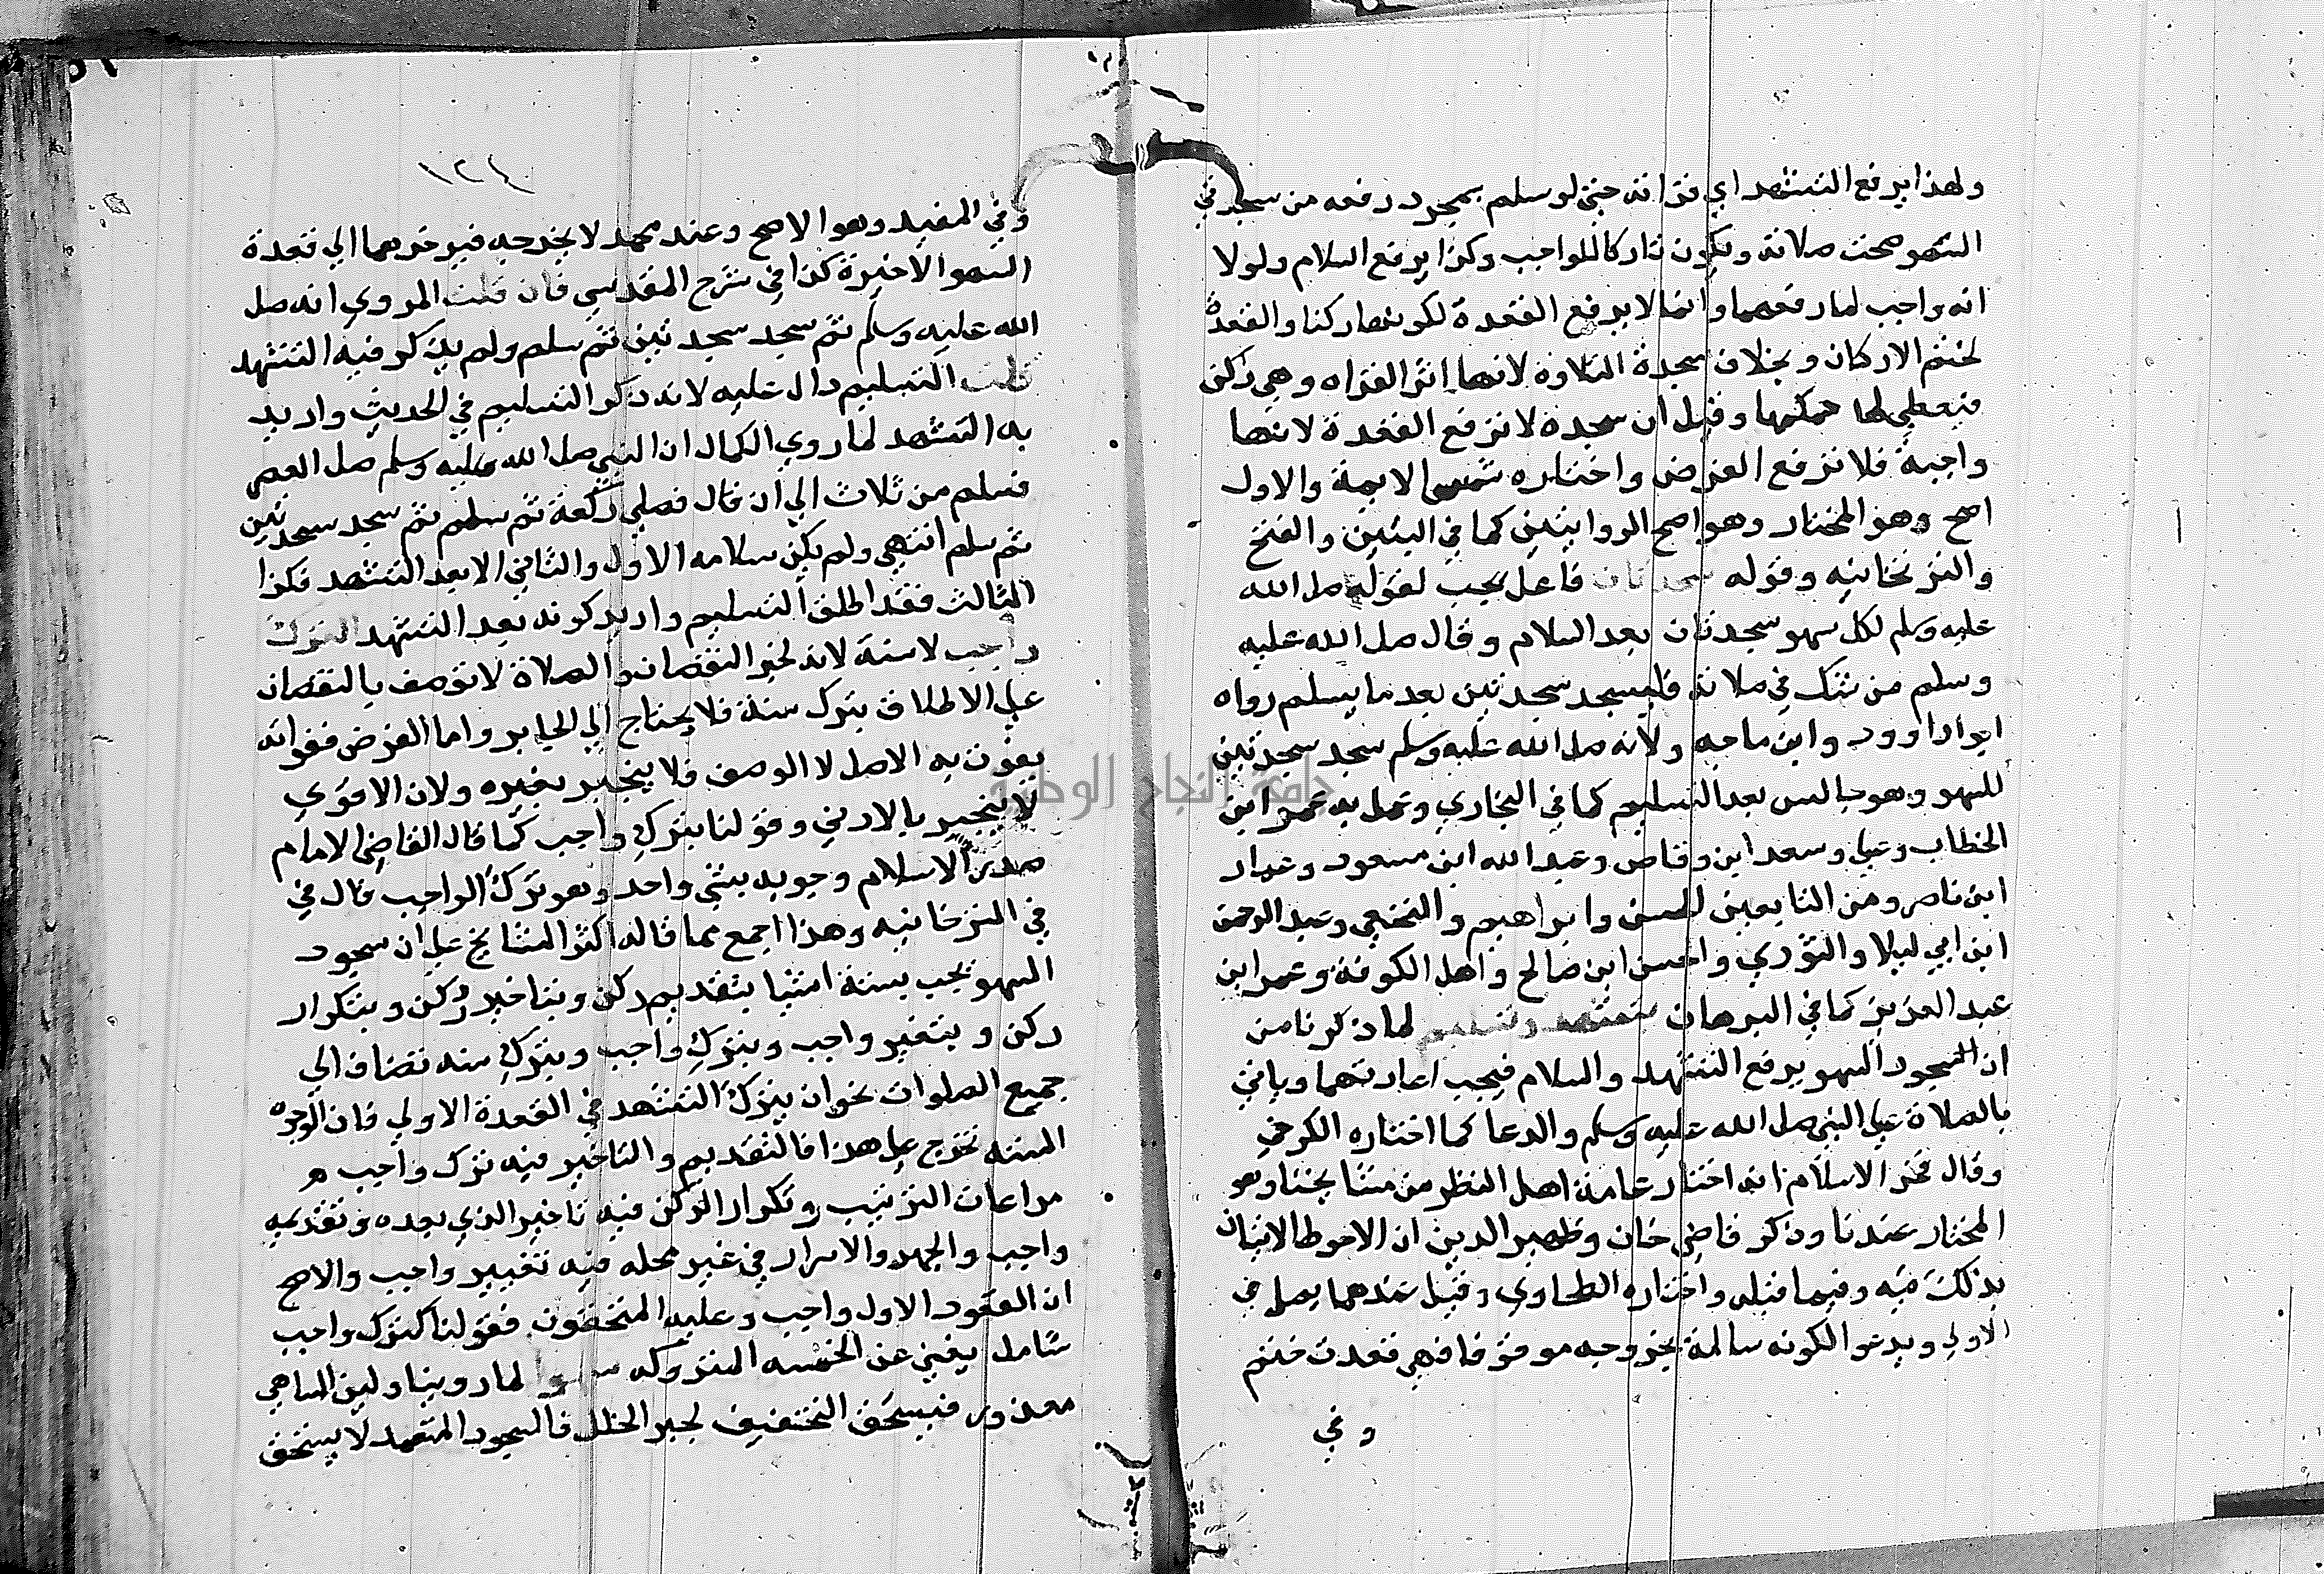 ولهذا يرفع التشهد اي قراته حتي لو سلم بمجرد رفعه من سجدتي
السهو صحت صلاته ويكون تاركا للواجب وكذا يرفع السلام ولولا
انه واجب لما رفعهما وانما لا يرفع القعدة لكونها ركنا والقعدة
لختم الاركان وبخلاف سجدة التلاوة لانها اثر القراه وهي ركن
فيعطي لها حكمها وقيل ان سجده لا ترفع القعدة لانها
واجبة فلا ترفع الفرض واختاره شمس الايمة والاول
اصح وهو المختار وهو اصح الروايتين كما في التبيين والفتح
والتترخانيه وقوله سجدتان فاعل يجب لقوله صل الله
عليه وسلم لكل سهو سجدتان بعد السلام وقال صل الله عليه
وسلم من شك في صلاته فليسجد سجدتين بعد ما يسلم رواه
ابو داوود وابن ماجه ولانه صل الله عليه وسلم سجد سجدتين
للسهو وهو جالس بعد التسليم كما في البخاري وعمل به عمر ابن
الخطاب وعلي وسعد ابن وقاص وعبد الله ابن مسعود وعمار
ابن ناصر ومن التابعين الحسن وابراهيم والنخعي وعبد الرحمن
ابن ابي ليلا والثوري والحسن ابن صالح واهل الكوفة وعمر ابن
عبد العزيز كما في البرهان بتشهد وتسليم لما ذكرنا من
ان السجود السهو يرفع التشهد والسلام فيجب اعادتهما وياتي
بالصلاة علي النبي صل الله عليه وسلم والدعا كما اختاره الكرخي
وقال فخر الاسلام انه اختار عامة اهل النظر من مشايخنا وهو
المختار عندنا وذكر قاضي خان وظهير الدين ان الاحوط الاتيان
بذلك فيه وفيما قبله واختاره الطحاوي وقيل عندهما يصل في
الاولي ويدعو الكونه سالمة بخروجه موقوفا فهي قعدت ختم
وفي
١٢٤
وفي المفيد وهو الاصح وعند محمد لا يخرجه فيوخرهما الي قعدة
السهو الاخيرة كذا في شرح المقدسي فان قلت المروي انه صل
الله عليه وسلم ثم سجد سجدتين ثم سلم ولم يذكر فيه التشهد
قلت التسليم دال عليه لانه ذكر التسليم في الحديث واريد
به التشهد لما روي الكمال ان النبي صل الله عليه وسلم صل العصر
فسلم من ثلاث الي ان قال فصلي ركعة ثم سلم ثم سجد سجدتين
ثم سلم انتهي ولم يكن سلامه الاول والثاني الا بعد التشهد فكذا
الثالث فقد اطلق التسليم واريد كونه بعد التشهد لترك
واجب لا سنة لانه لجبر النقصان والصلاة لا توصف بالنقصان
علي الاطلاق بترك سنة فلا يحتاج الي الجابر واما الفرض ففواته
يفوت به الاصل لا الوصف فلا ينجبر بغيره ولان الاقوي
لا ينجبر بالادني وقولنا بترك واجب كما قال القاضي الامام
صدر الاسلام وجوبه بشي واحد وهو ترك الواجب قال في
في التترخانيه وهذا اجمع مما قاله اكثر المشايخ علي ان سجود
السهو يجب بستة اشيا بتقديم ركن وبتاخير ركن وبتكرار
ركن وبتغير واجب وبترك واجب وبترك سنه تضاف الي
جميع الصلوات نحو ان يترك التشهد في القعدة الاولي فان الوجوه
الستة تخرج علي هذا فالتقديم والتاخير فيه ترك واجب هو
مراعات الترتيب وتكرار الركن فيه تاخير الذي بعده وتقديمه
واجب والجهر والاسرار في غير محله فيه تغيير واجب والاصح
ان القعود الاول واجب وعليه المتحققون فقولنا كترك واجب
شامل يغني عن الخمسه المتروكه سهوا لما روينا ولين الساهي
معذور فيستحق التخفيف لجبر الخلل فالسجود المتعمد لا يستحق